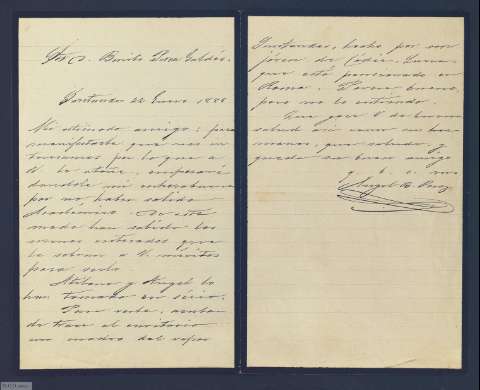 Sr D. Benito Perez Galdós.
Santander 22 Enero 1888
Mi estimado amigo: para
manifestarle que nos in
teresamos por lo que a
V. le atañe, empezaré
dandole mi enhorabuena
por no haber salido
Académico. De este
modo han salido los
menos enterados que
le sobran a V. méritos
para serlo.
Atilano y Angel lo
han tomado en sério.
Para verla, acaban
de traer al escritorio
un modelo del vapor
Santander, hecho por un
jóven de Cádiz,
que está pensionado en
Roma. Parece bueno,
pero no lo entiendo.
Que goce V. de buena
salud asi como sus her
manas, que saludo y
queda su buen amigo
q. b. s. m.
Angel B. Perez